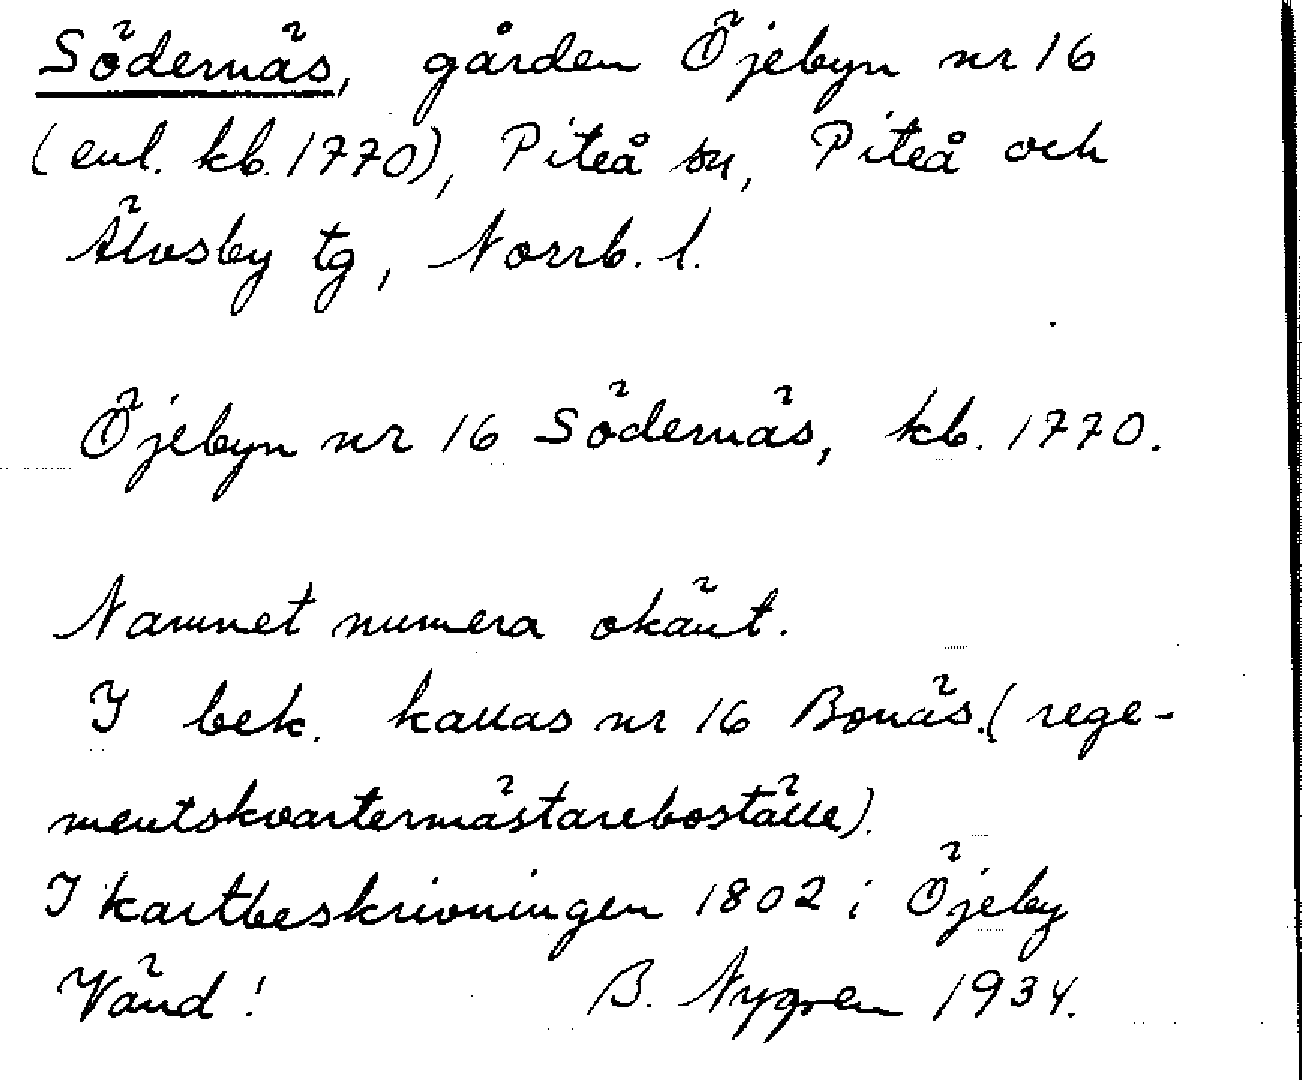 Södernäs, gården Öjebyn nr 16
(enl. kb. 1770), Piteå sn, Piteå och
Älvsby tg, Norrb. l.
Öjebyn nr 16 Södernäs, kb. 1770.
Namnet numera okänt.
I bek. kallas nr 16 Bonäs. (rege-
mentskvartermästareboställe).
I kartbeskrivningen 1802 i Öjeby
Vänd! B. Nygren 1934.